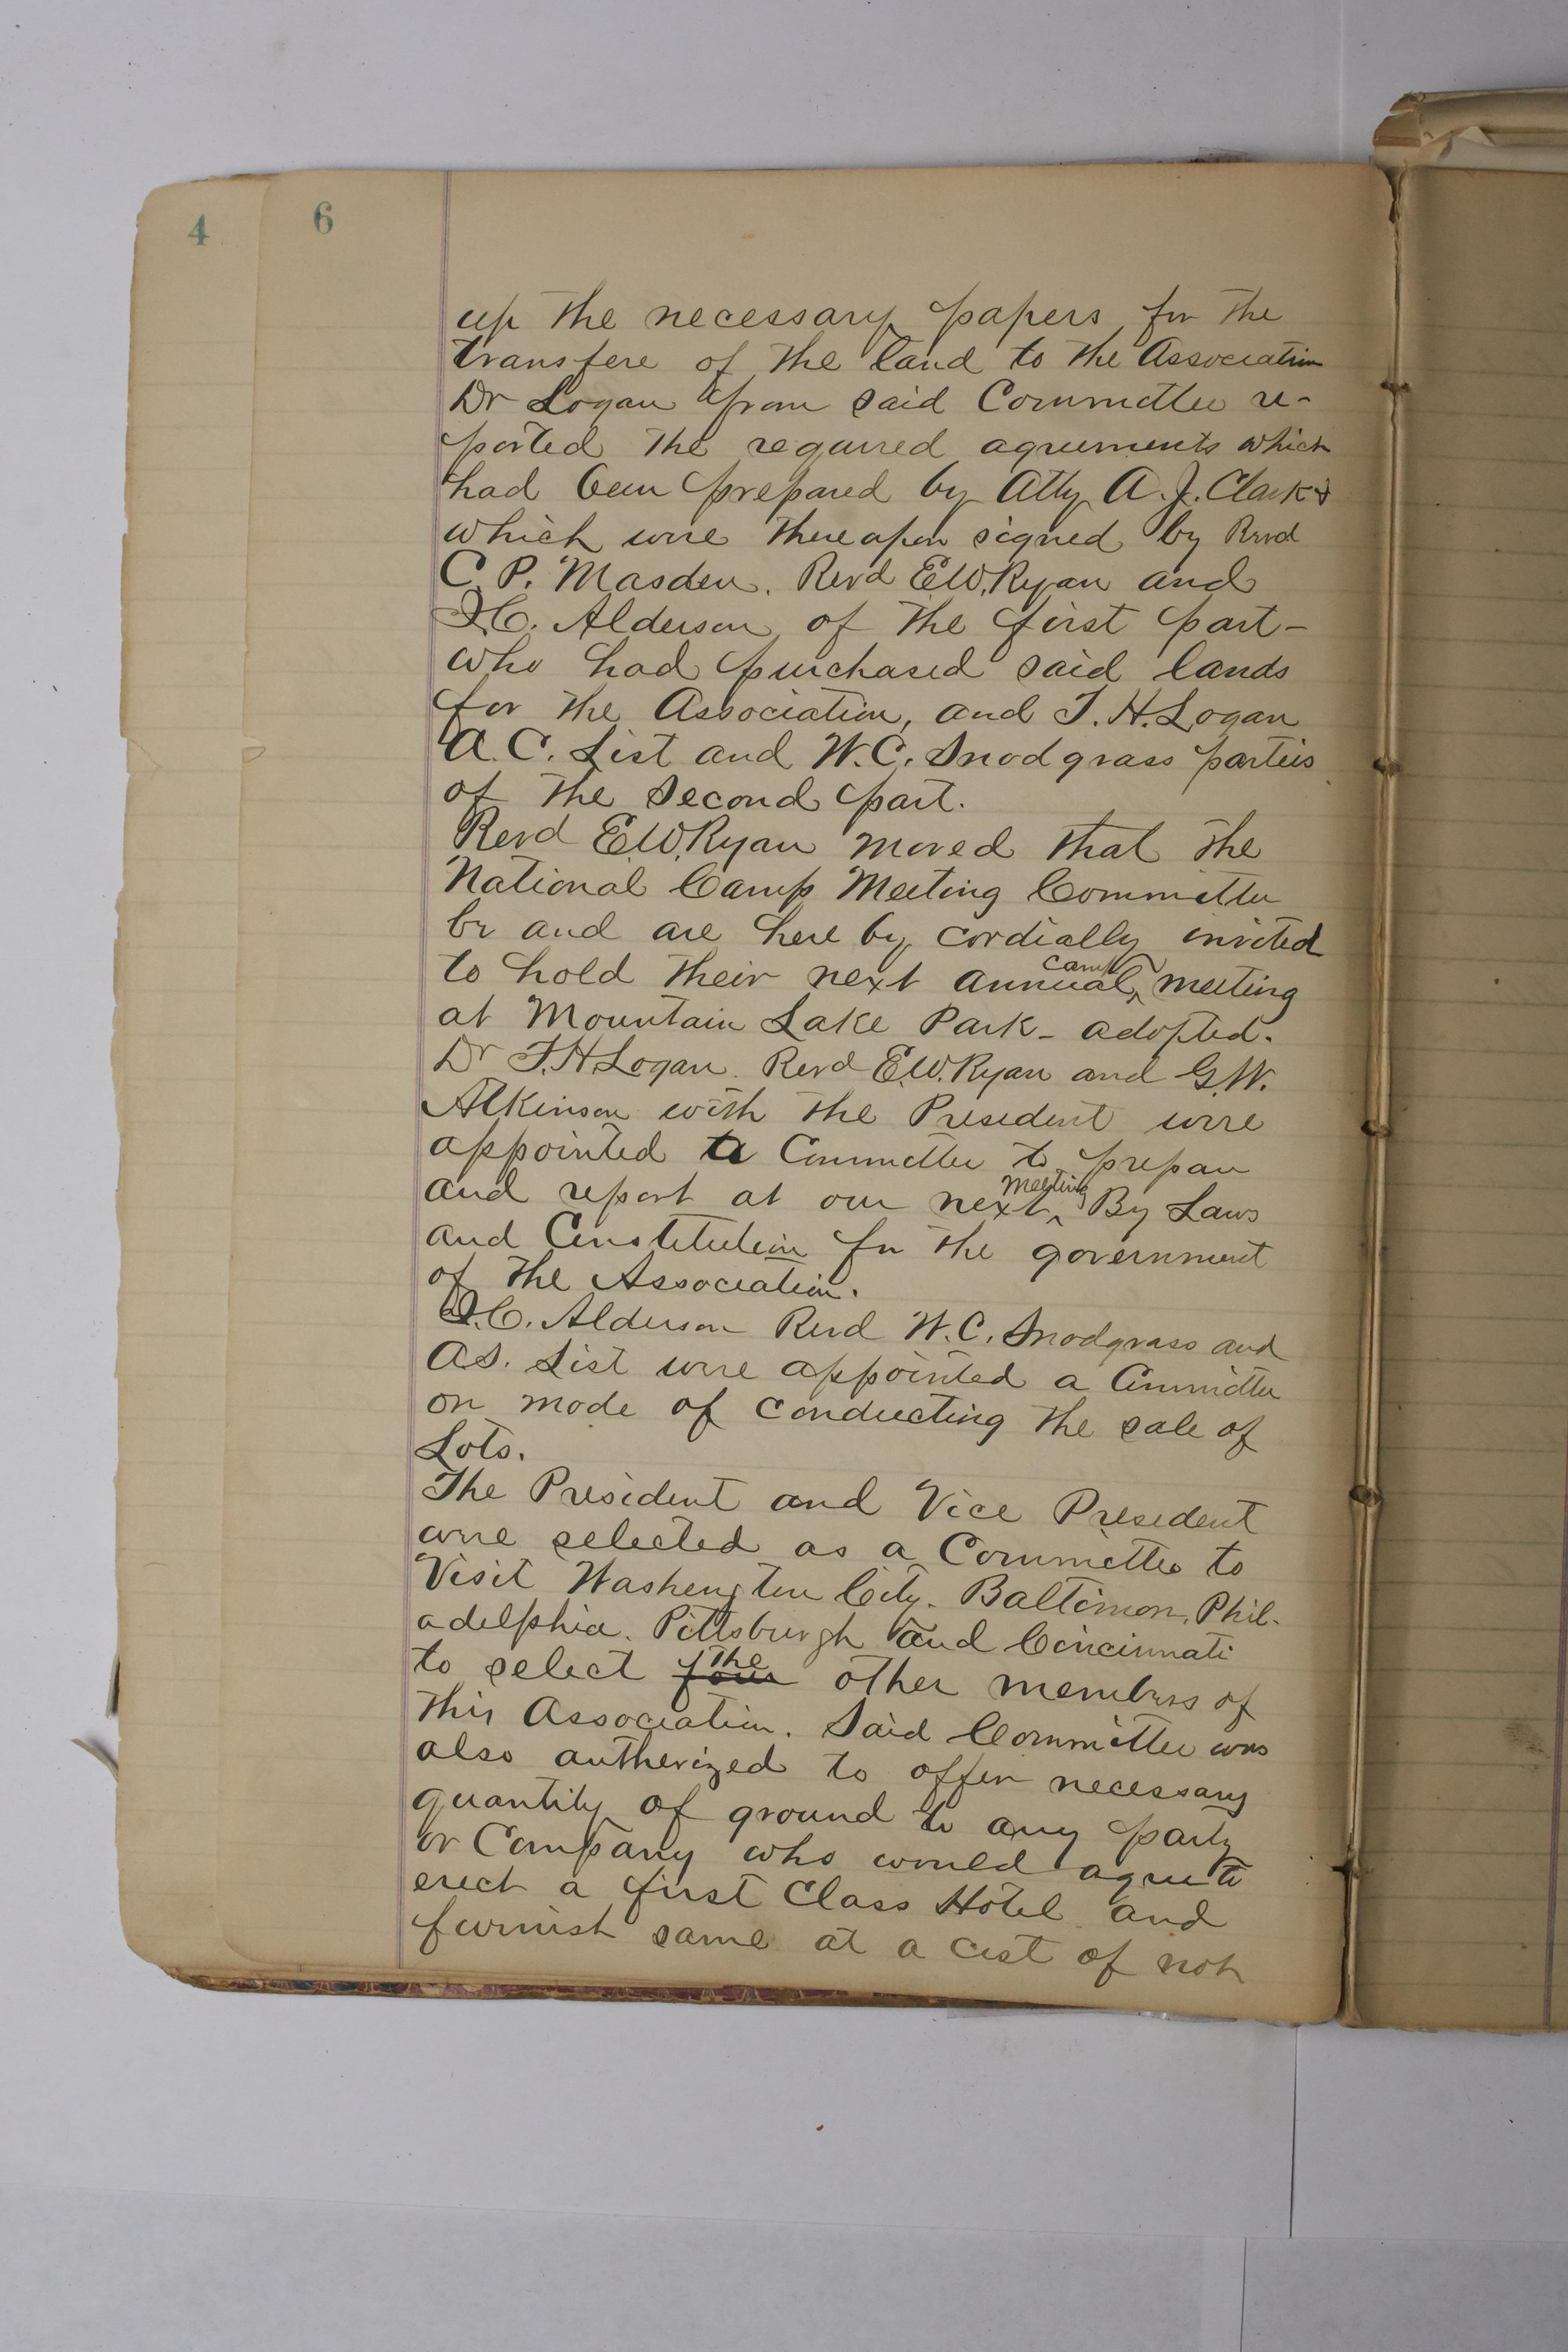 4
6
up the necessary papers for the
transfere of the land to the Association
Dr Logan from said Committee re-
ported the required agreements which
had been prepared by Atty A. J. Clark &
which were thereupon signed by Revd
C. P. Masden. Revd E.W. Ryan and
J.C. Alderson of the first part -
who had purchased said lands
for the Association, and T. H. Logan
A. C. List and W. C. Snodgrass parties
of the second part.
Revd E.W. Ryan moved that the
National Camp Meeting Committee
be and are here by cordially invited
to hold their next annual camp meeting
at Mountain Lake Park - adopted.
Dr T.H. Logan. Revd E.W. Ryan and G.W.
Atkinson with the President were
appointed a Committee to prepare
and report at our next meeting By Laws
and Constitution for the government
of the Association.
J.C. Alderson Revd W. C. Snodgrass and
A.S. List were appointed a Committee
on mode of conducting the sale of
Lots.
The President and Vice President
were selected as a Committee to
Visit Washington City. Baltimore, Phil-
adelphia. Pittsburgh and Cincinnati
to select four the other members of
this Association. Said Committee was
also autherized to offer necessary
quantity of ground to any party
or Company who would agree to
erect a first Class Hotel and
furnish same at a cost of not